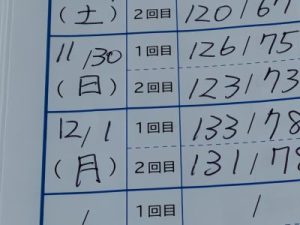 (土) 2回目 120/67
11/30 1回目 126/75
(日) 2回目 123/73
12/1 1回目 133/78
(月) 2回目 131/78
/ 1回目 /